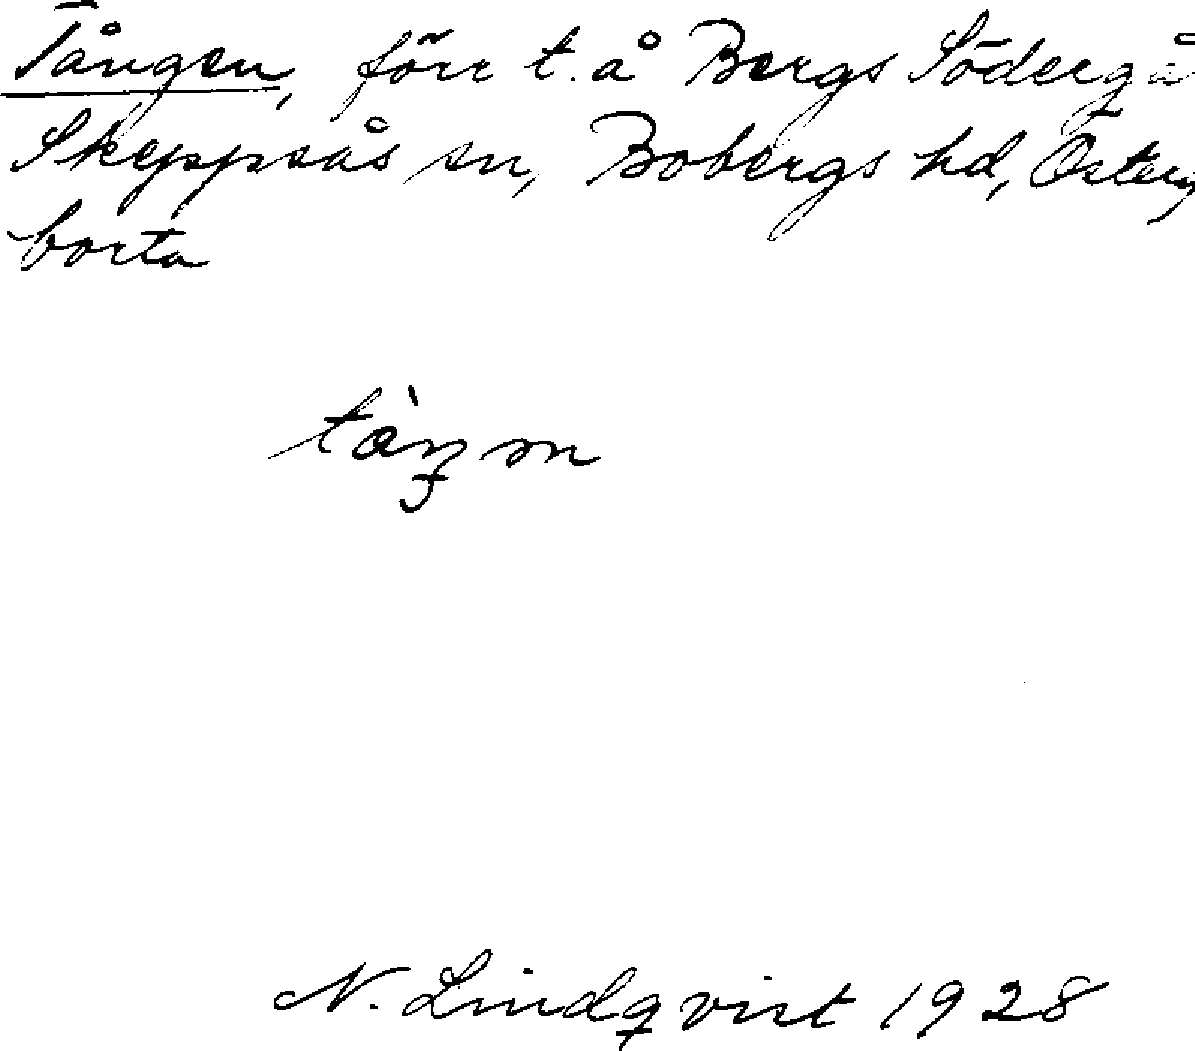 Tången, förr t. å Bergs Södergå
Skeppsås sn, Bobergs hd, Österg
borta
N. Lindqvist 1928